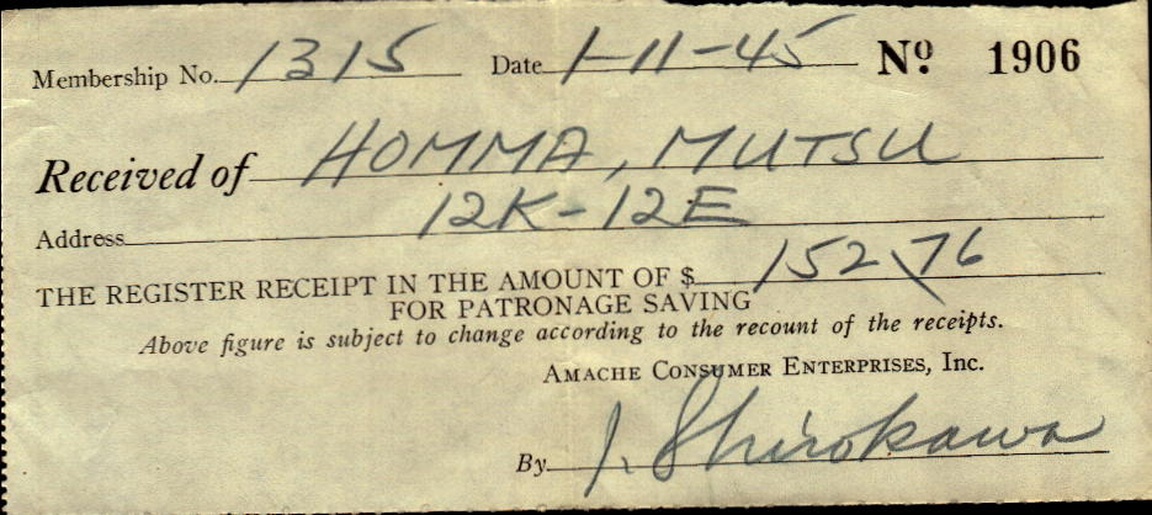 Membership No. 1315 Date 1-11-45 Nº 1906
Received of HOMMA, MUTSU
Address 12K-12E
THE REGISTER RECEIPT IN THE AMOUNT OF $ 152\76
FOR PATRONAGE SAVING
Above figure is subject to change according to the recount of the receipts.
AMACHE CONSUMER ENTERPRISES, INC.
By J. Shirokawa